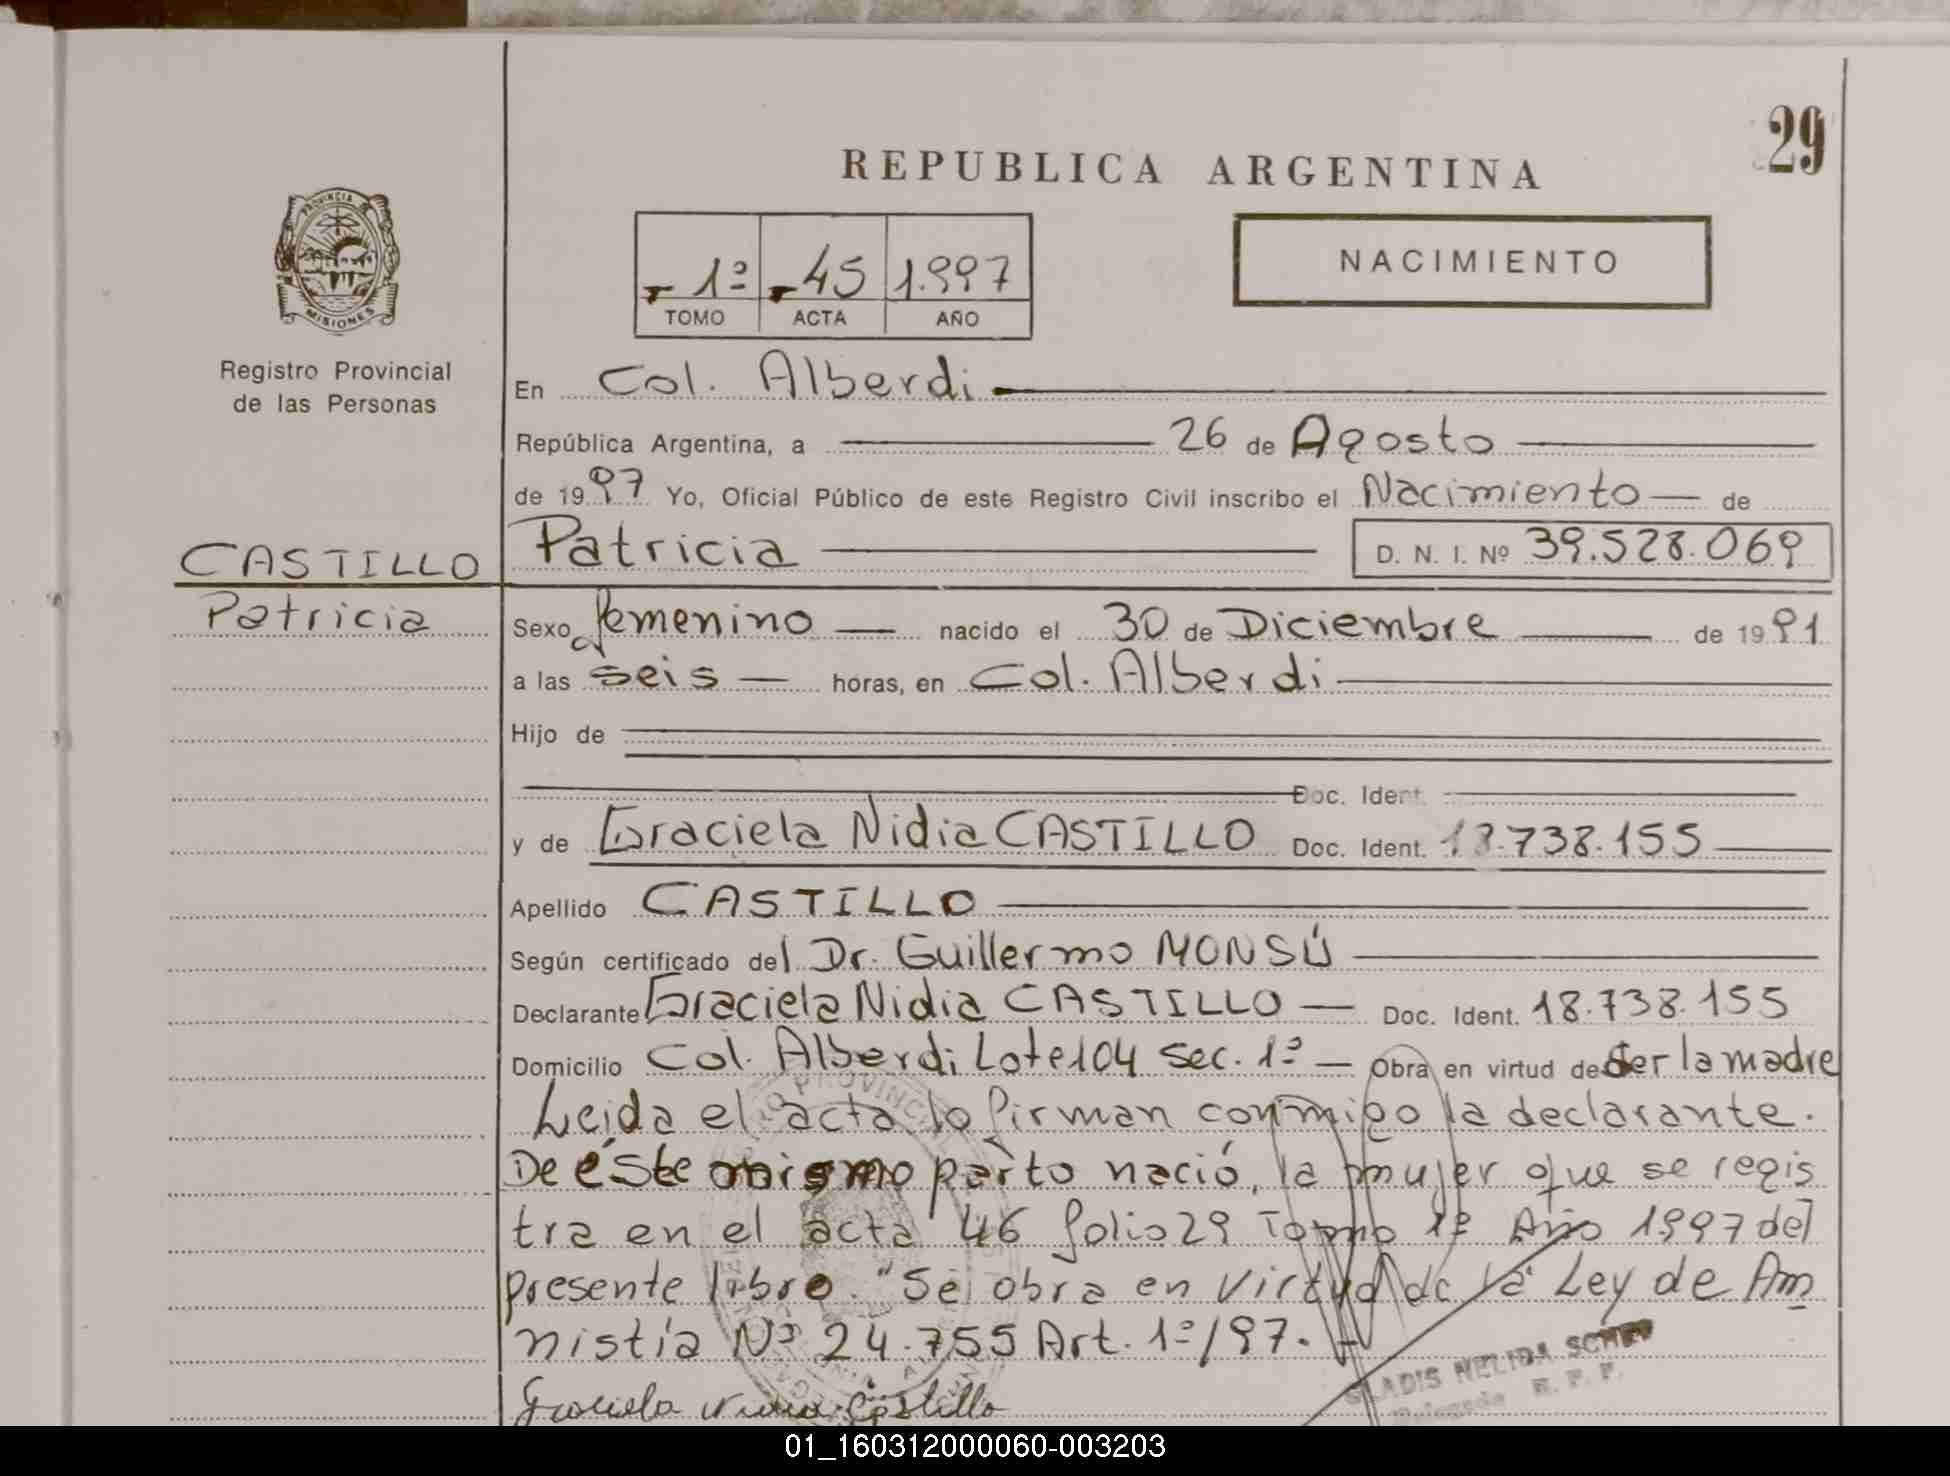 29
REPUBLICA ARGENTINA
PROVINCIA DE
MISIONES
Registro Provincial
de las Personas
1º 45 1.997
TOMO ACTA AÑO
NACIMIENTO
En Col. Alberdi
República Argentina, a 26 de Agosto
de 1997 Yo, Oficial Público de este Registro Civil inscribo el Nacimiento de
CASTILLO
Patricia
Patricia D. N. I. Nº 39.528.069
Sexo femenino nacido el 30 de Diciembre de 1991
a las seis horas, en Col. Alberdi
Hijo de
Doc. Ident.
y de Graciela Nidia CASTILLO Doc. Ident. 18.738.155
Apellido CASTILLO
Según certificado del Dr. Guillermo MONSÚ
Declarante Graciela Nidia CASTILLO Doc. Ident. 18.738.155
Domicilio Col. Alberdi Lote 104 Sec. 1º Obra en virtud de ser la madre
Leída el acta lo firman conmigo la declarante.
De éste mismo parto nació, la mujer que se regis
tra en el acta 46 folio 29 Tomo 1º Año 1997 del
presente libro. "Se obra en virtud de la Ley de Am
nistía Nº 24.755 Art. 1º/97.-
Graciela Nidia Castillo
GLADIS NELIDA
Delegada R. P. P.
01_160312000060-003203